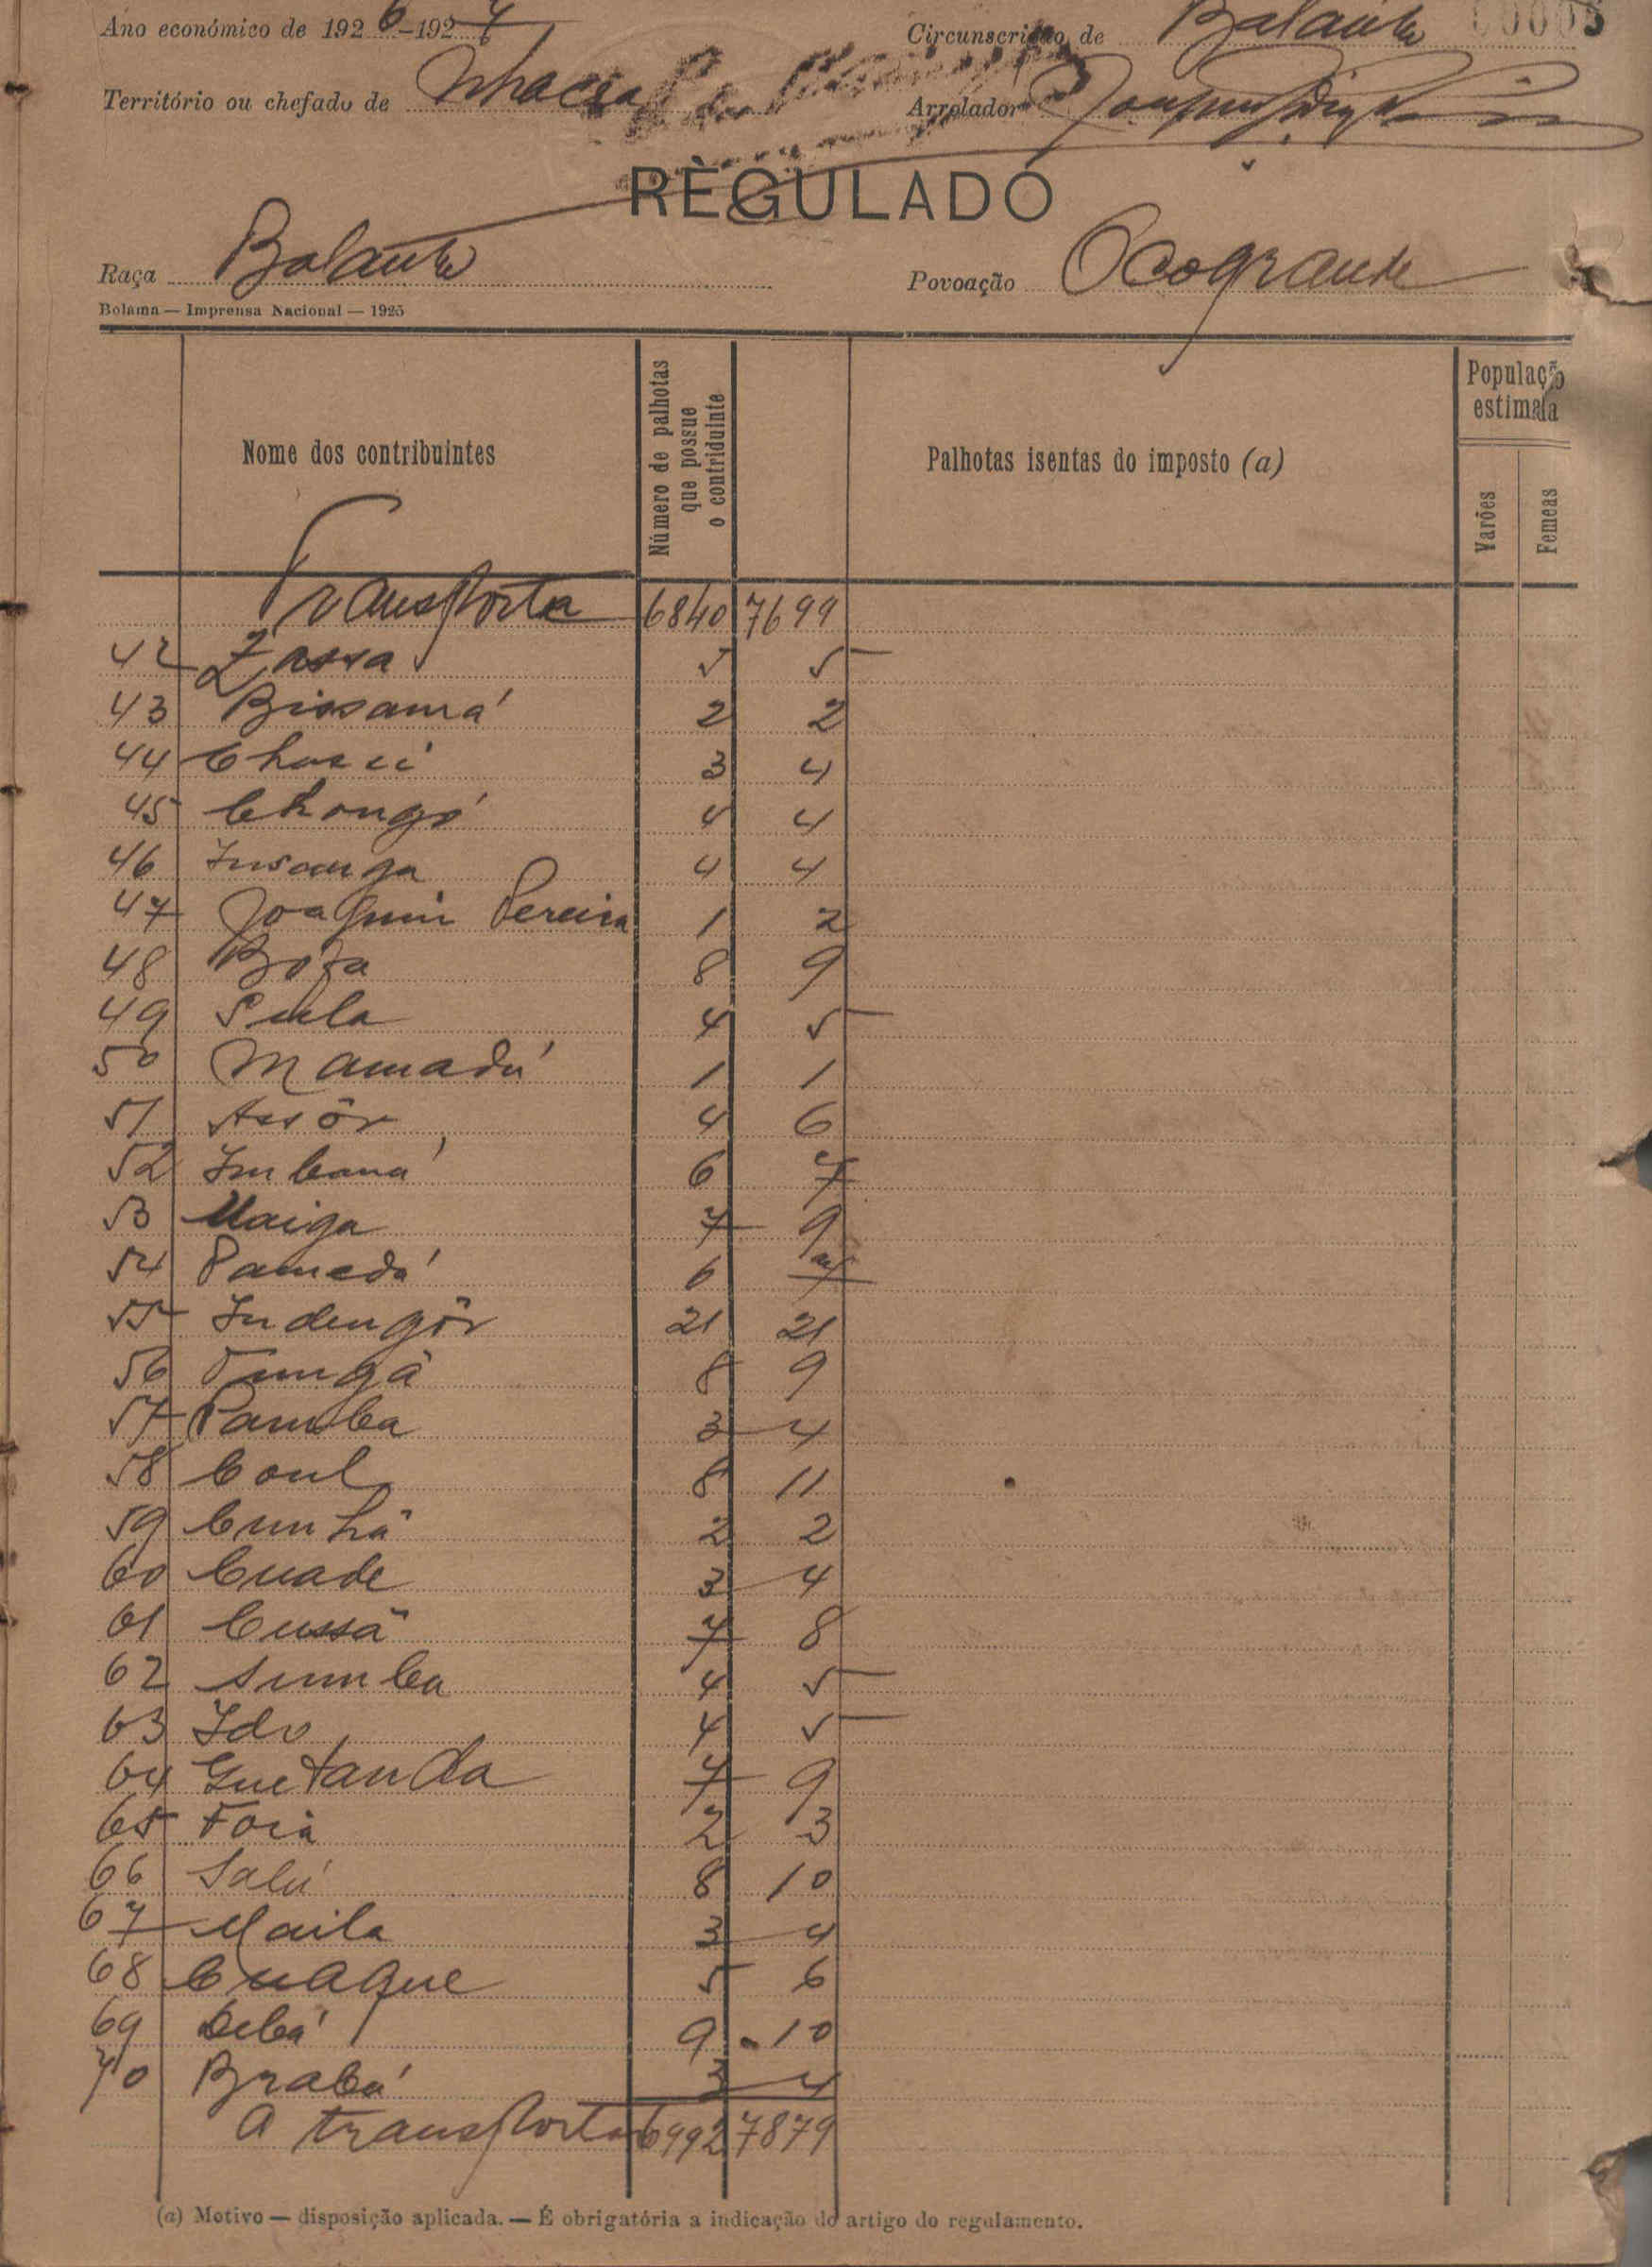 Ano económico de 1926-1927 Circunscrição de Balanta 00005
Território ou chefado de Nhacra Arrolador
REGULADO
Raça Balanta Povoação Ocogrande
Bolama — Imprensa Nacional — 1925
Nome dos contribuintes Número de palhotas que possue o contriduinte Palhotas isentas do imposto (a) População estimada Varões Femeas
Transporta 6840 7699
42 Zassa 5 5
43 Bissamá 2 2
44 3 4
45 Chongó 4 4
46 Insanga 4 4
47 Joaquim Pereira 1 2
48 Bofa 8 9
49 Sula 4 5
50 Mamadú 1 1
51 Assôr 4 6
52 Imbaná 6 7
53 Maiga 7 9
54 6 7
55 Indengôr 21 21
56 8 9
57 Pamba 3 4
58 Coul 8 11
59 Cunhã 2 2
60 Cuade 3 4
61 Cussã 7 8
62 Sumba 4 5
63 Ido 4 5
64 Guetanda 7 9
65 Foiá 2 3
66 Salú 8 10
67 Maila 3 4
68 Cuaque 5 6
69 Bebá 9 10
70 Brabá 3 4
A transportar 6992 7879
(a) Motivo — disposição aplicada. — É obrigatória a indicação do artigo do regulamento.